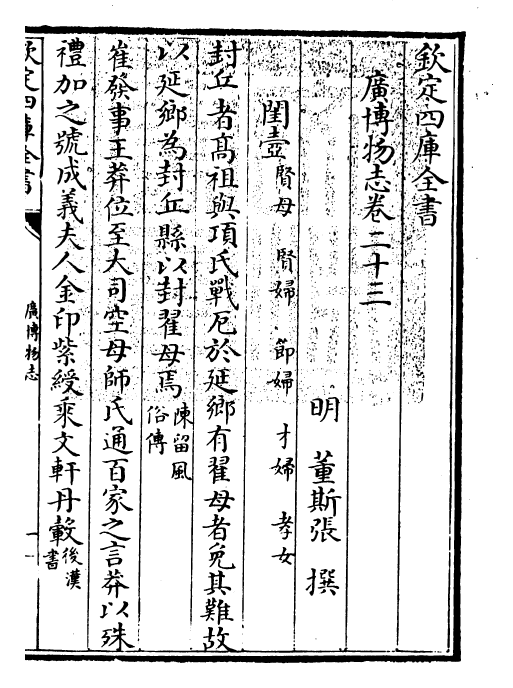 欽定四庫全書
廣博物志卷二十三
明　董斯張　撰
閨壼賢母　賢婦　節婦　才婦　孝女
封丘者髙祖與項氏戰厄於延鄉有翟母者免其難故
以延鄉為封丘縣以封翟母焉陳留風俗傳
崔發事王莽位至大司空母師氏通百家之言莽以殊
禮加之號成義夫人金印紫綬乘文軒丹轂後漢書
欽定四庫全書
廣博物志
一